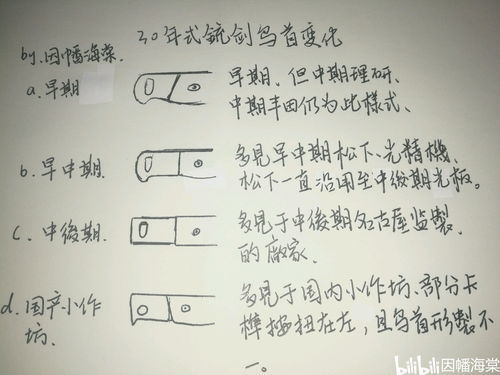 30年式銃剑鸟首变化
by.因幡海棠.
a.早期
早期、但中期理研、
中期丰田仍为此樣式、
b.早中期.
多見早中期松下、光精機、
松下一直沿用至中後期光板。
c.中後期.
多見于中後期名古屋监製
的廠家.
d.国产小作
坊.
多見于国内小作坊、部分卡
榫按扭在左，且鸟首形製不
一。
bilibili因幡海棠